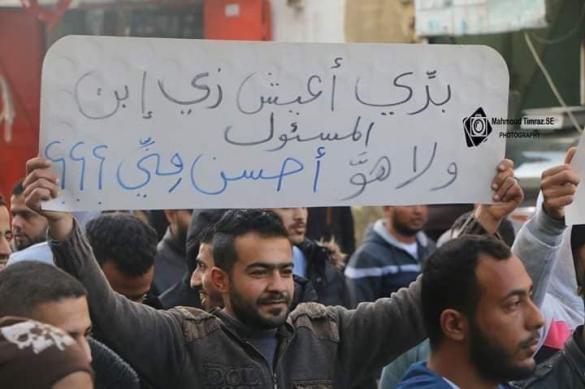 بدِّي أعيش زي إبن
المسئول
ولا هوَّ أحسن مِنِّي ؟؟؟
Mahmoud Timraz.SE
PHOTOGRAPHY